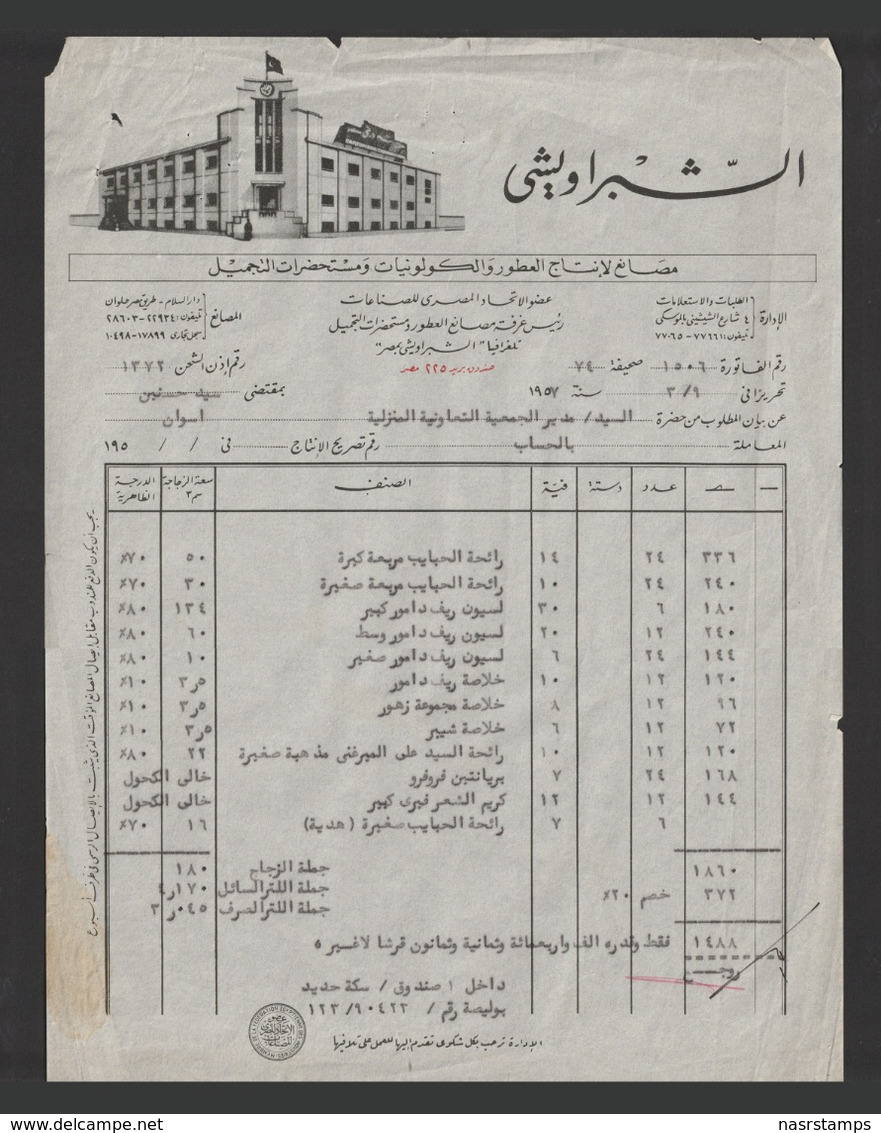 الشبراويشى
مصانع لإنتاج العطور والكولونيات ومستحضرات التجميل
الإدارة الطلبات والاستعلامات ٤ شارع الششينى بالموسكى تليفون: ٧٧٦٦١ - ٧٧٠٦٥
عضو الاتحاد المصرى للصناعات
رئيس غرفة مصانع العطور ومستحضرات التجميل
تلغرافيا "الشبراويشى بمصر"
صندوق بريد ٢٢٥ مصر
المصانع دار السلام - طريق مصر حلوان تليفون: ٢٢٩٣٤ - ٢٨٦٠٣ سجل تجارى ١٧٨٩٩ - ١٠٤٩٨
رقم الفاتورة ١٥٠٦ صحيفة ٧٤ رقم إذن الشحن ١٣٧٢
تحريرا فى ٣/٩ سنة ١٩٥٧ بمقتضى سيد حسنين
عن بيان المطلوب من حضرة السيد/ مدير الجمعية التعاونية المنزلية اسوان
المعاملة بالحساب رقم تصريح الإنتاج فى / / ١٩٥
عدد دستة فئة الصنف سعة الزجاجة سم٣ الدرجة الظاهرية
٣٣٦ ٢٤ ١٤ رائحة الحبايب مربعة كبرة ٥٠ ٧٠٪
٢٤٠ ٢٤ ١٠ رائحة الحبايب مربعة صغيرة ٣٠ ٧٠٪
١٨٠ ٦ ٣٠ لسيون ريف دامور كبير ١٣٤ ٨٠٪
٢٤٠ ١٢ ٢٠ لسيون ريف دامور وسط ٦٠ ٨٠٪
١٤٤ ٢٤ ٦ لسيون ريف دامور صغير ١٠ ٨٠٪
١٢٠ ١٢ ١٠ خلاصة ريف دامور ٥ر٣ ١٠٪
٩٦ ١٢ ٨ خلاصة مجموعة زهور ٥ر٣ ١٠٪
٧٢ ١٢ ٦ خلاصة شيبر ٥ر٣ ١٠٪
١٢٠ ١٢ ١٠ رائحة السيد على الميرغنى مذهبة صغيرة ٢٢ ٨٠٪
١٦٨ ٢٤ ٧ بريانتين فروفرو خالى الكحول
١٤٤ ١٢ ١٢ كريم الشعر فيرى كبير خالى الكحول
٦ ٧ رائحة الحبايب صغيرة (هدية) ١٦ ٧٠٪
١٨٦٠ جملة الزجاج ١٨٠
٣٧٢ خصم ٢٠٪ جملة اللتر السائل ١٧٠ر٤
جملة اللتر الصرف ٠٤٥ر٣
١٤٨٨ فقط وقدره الف واربعمائة وثمانية وثمانون قرشا لاغير
داخل ١ صندوق / سكة حديد
بوليصة رقم / ١٢٣/٩٠٤٢٣
الإدارة ترحب بكل شكوى تقدم إليها للعمل على تلافيها
عضو الاتحاد المصرى للصناعات
nasrstamps
www.delcampe.net